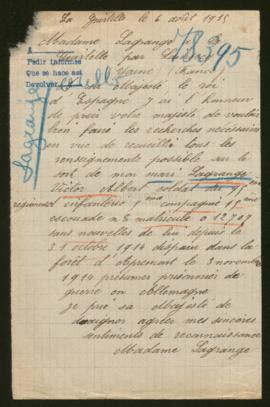 La Guitelle le 6 août 1915
Madame Lagrange
Guitelle par
Yonne (France)
78395
Pedir informes
Que se hace así
Devolver
Lagrange
sa Majesté le roi
d'Espagne j ai l honneur
de prier votre majesté de vouloir
bien faire les recherches nécessaires
en vue de recueilli tous les
renseignements possible sur le
sort de mon mari Lagrange
Victor Albert soldat du
regiment infanterie compagnie 15 eme
escouade matricule
sans nouvelles de lui depuis le
31 octobre 1914 disparu dans la
forêt d'Apremont le 3 novembre
1914 présumer prisonnier de
guerre en Allemagne
je prie sa Majesté de
daigner agréer mes sincères
sentiments de reconnaissance
Madame Lagrange